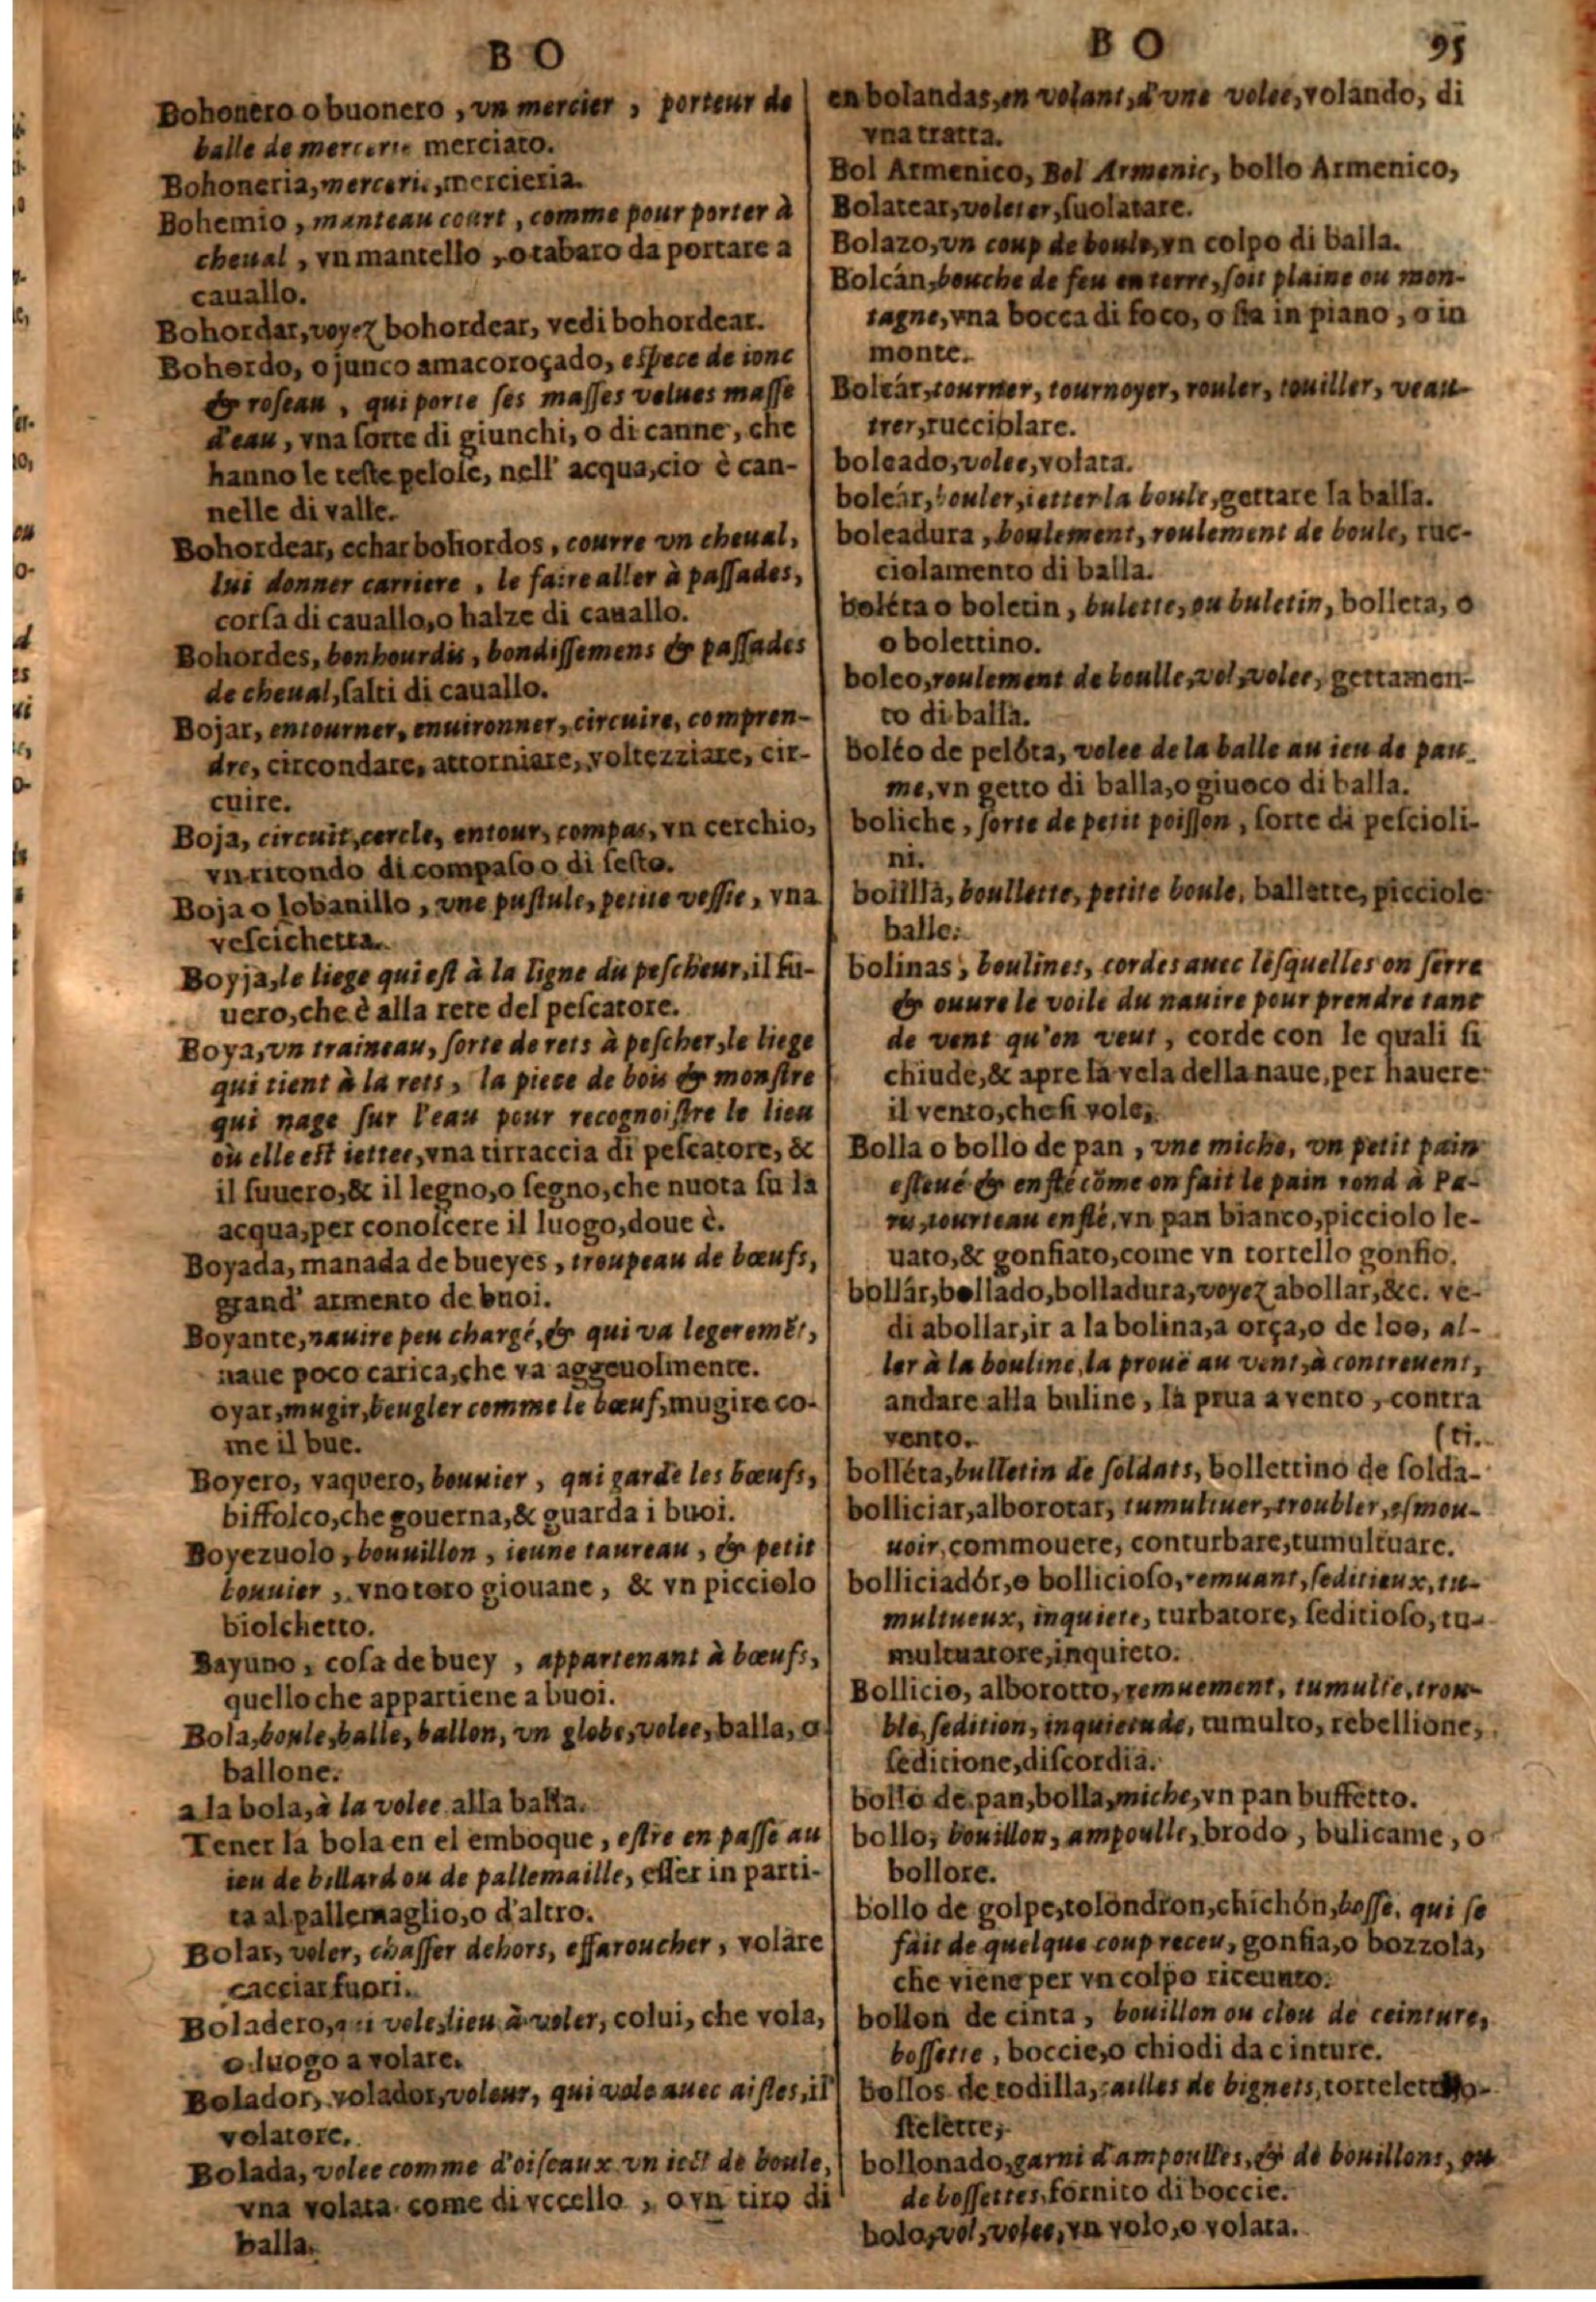 B O
Bohonero o buonero, vn mercier, porteur de
balle de mercerie merciaro.
Bohoneria, mercerie, mercieria.
Bohemio, manteau court, comme pour porter à
cheual, vn mantello, o tabaro da portare a
cauallo.
Bohordar, voyez bohordear, vedi bohordear.
Bohordo, o junco amacoroçado, espece de ionc
& roseau, qui porte ses masses velues masse
d'eau, vna sorte di giunchi, o di canne, che
hanno le teste pelose, nell' acqua, cio è can-
nelle di valle.
Bohordear, echar bohordos, courre vn cheual,
lui donner carriere, le faire aller à passades,
corsa di cauallo, o halze di cauallo.
Bohordes, bonhourdis, bondissemens & passades
de cheual, salti di cauallo.
Bojar, entourner, enuironner, circuire, compren-
dre, circondare, attorniare, voltezziare, cir-
cuire.
Boja, circuit, cercle, entour, compas, vn cerchio,
vn ritondo di compaso o di sesto.
Boja o lobanillo, vne pustule, petite vessie, vna
vescichetta.
Boyja, le liege qui est à la ligne du pescheur, il su-
uero, che è alla rete del pescatore.
Boya, vn traineau, sorte de rets à pescher, le liege
qui tient à la rets, la piece de bois & monstre
qui nage sur l'eau pour recognoistre le lieu
où elle est iettee, vna tirraccia di pescatore, &
il suuero, & il legno, o segno, che nuota su la
acqua, per conoscere il luogo, doue è.
Boyada, manada de bueyes, troupeau de bœufs,
grand' armento de buoi.
Boyante, nauire peu chargé, & qui va legeremēt,
naue poco carica, che va aggeuolmente.
oyar, mugir, beugler comme le bœuf, mugire co-
me il bue.
Boyero, vaquero, bouuier, qui garde les bœufs,
biffolco, che gouerna, & guarda i buoi.
Boyezuolo, bouuillon, ieune taureau, & petit
bouuier, vno toro giouane, & vn picciolo
biolchetto.
Bayuno, cosa de buey, appartenant à bœufs,
quello che appartiene a buoi.
Bola, boule, balle, ballon, vn globe, volee, balla, o
ballone.
a la bola, à la volee alla balla.
Tener la bola en el emboque, estre en passe au
ieu de billard ou de pallemaille, esser in parti-
ta al pallemaglio, o d'altro.
Bolar, voler, chasser dehors, effaroucher, volare
cacciar fuori.
Boladero, qui vole, lieu à voler, colui, che vola,
o luogo a volare.
Bolador, volador, voleur, qui vole auec aisles, il
volatore.
Bolada, volee comme d'oiseaux vn iect de boule,
vna volata come di vccello, o vn tiro di
balla.
B O 95
en bolandas, en volant, d'vne volee, volando, di
vna tratta.
Bol Armenico, Bol Armenic, bollo Armenico,
Bolatear, voleter, suolatare.
Bolazo, vn coup de boule, vn colpo di balla.
Bolcán, bouche de feu en terre, soit plaine ou mon-
tagne, vna bocca di foco, o sia in piano, o in
monte.
Bolcár, tourner, tournoyer, rouler, touiller, veau-
trer, rucciolare.
boleado, volee, volata.
boleár, bouler, ietter la boule, gettare la balla.
boleadura, boulement, roulement de boule, ruc-
ciolamento di balla.
boléta o boletin, bulette, ou buletin, bolleta, o
o bolettino.
boleo, roulement de boulle, vol, volee, gettamen-
to di balla.
boléo de pelóta, volee de la balle au ieu de pau-
me, vn getto di balla, o giuoco di balla.
boliche, sorte de petit poisson, sorte di pescioli-
ni.
bolilla, boullette, petite boule, ballette, picciole
balle.
bolinas, boulines, cordes auec lesquelles on serre
& ouure le voile du nauire pour prendre tant
de vent qu'on veut, corde con le quali si
chiude, & apre la vela della naue, per hauere
il vento, che si vole,
Bolla o bollo de pan, vne miche, vn petit pain
esleué & enflé cōme on fait le pain rond à Pa-
ris, tourteau enflé, vn pan bianco, picciolo le-
uato, & gonfiato, come vn tortello gonfio.
bollár, bollado, bolladura, voyez abollar, &c. ve-
di abollar, ir a la bolina, a orça, o de loo, al-
ler à la bouline, la prouë au vent, à contreuent,
andare alla buline, la prua a vento, contra
vento. (ti.
bolléta, bulletin de soldats, bollettino de solda-
bolliciar, alborotar, tumultuer, troubler, esmou-
uoir, commouere, conturbare, tumultuare.
bolliciadór, o bollicioso, remuant, seditieux, tu-
multueux, inquiete, turbatore, seditioso, tu-
multuatore, inquieto.
Bollicio, alborotto, remuement, tumulte, trou-
ble, sedition, inquietude, tumulto, rebellione,
seditione, discordia.
bollo de pan, bolla, miche, vn pan buffetto.
bollo, bouillon, ampoulle, brodo, bulicame, o
bollore.
bollo de golpe, tolondron, chichón, bosse, qui se
fait de quelque coup receu, gonfia, o bozzola,
che viene per vn colpo riceuuto.
bollon de cinta, bouillon ou clou de ceinture,
bossette, boccie, o chiodi da cinture.
bollos de rodilla, tailles de bignets, tortelette o-
stelette,
bollonado, garni d'ampoulles, & de bouillons, ou
de bossettes, fornito di boccie.
bolo, vol, volee, vn volo, o volata.